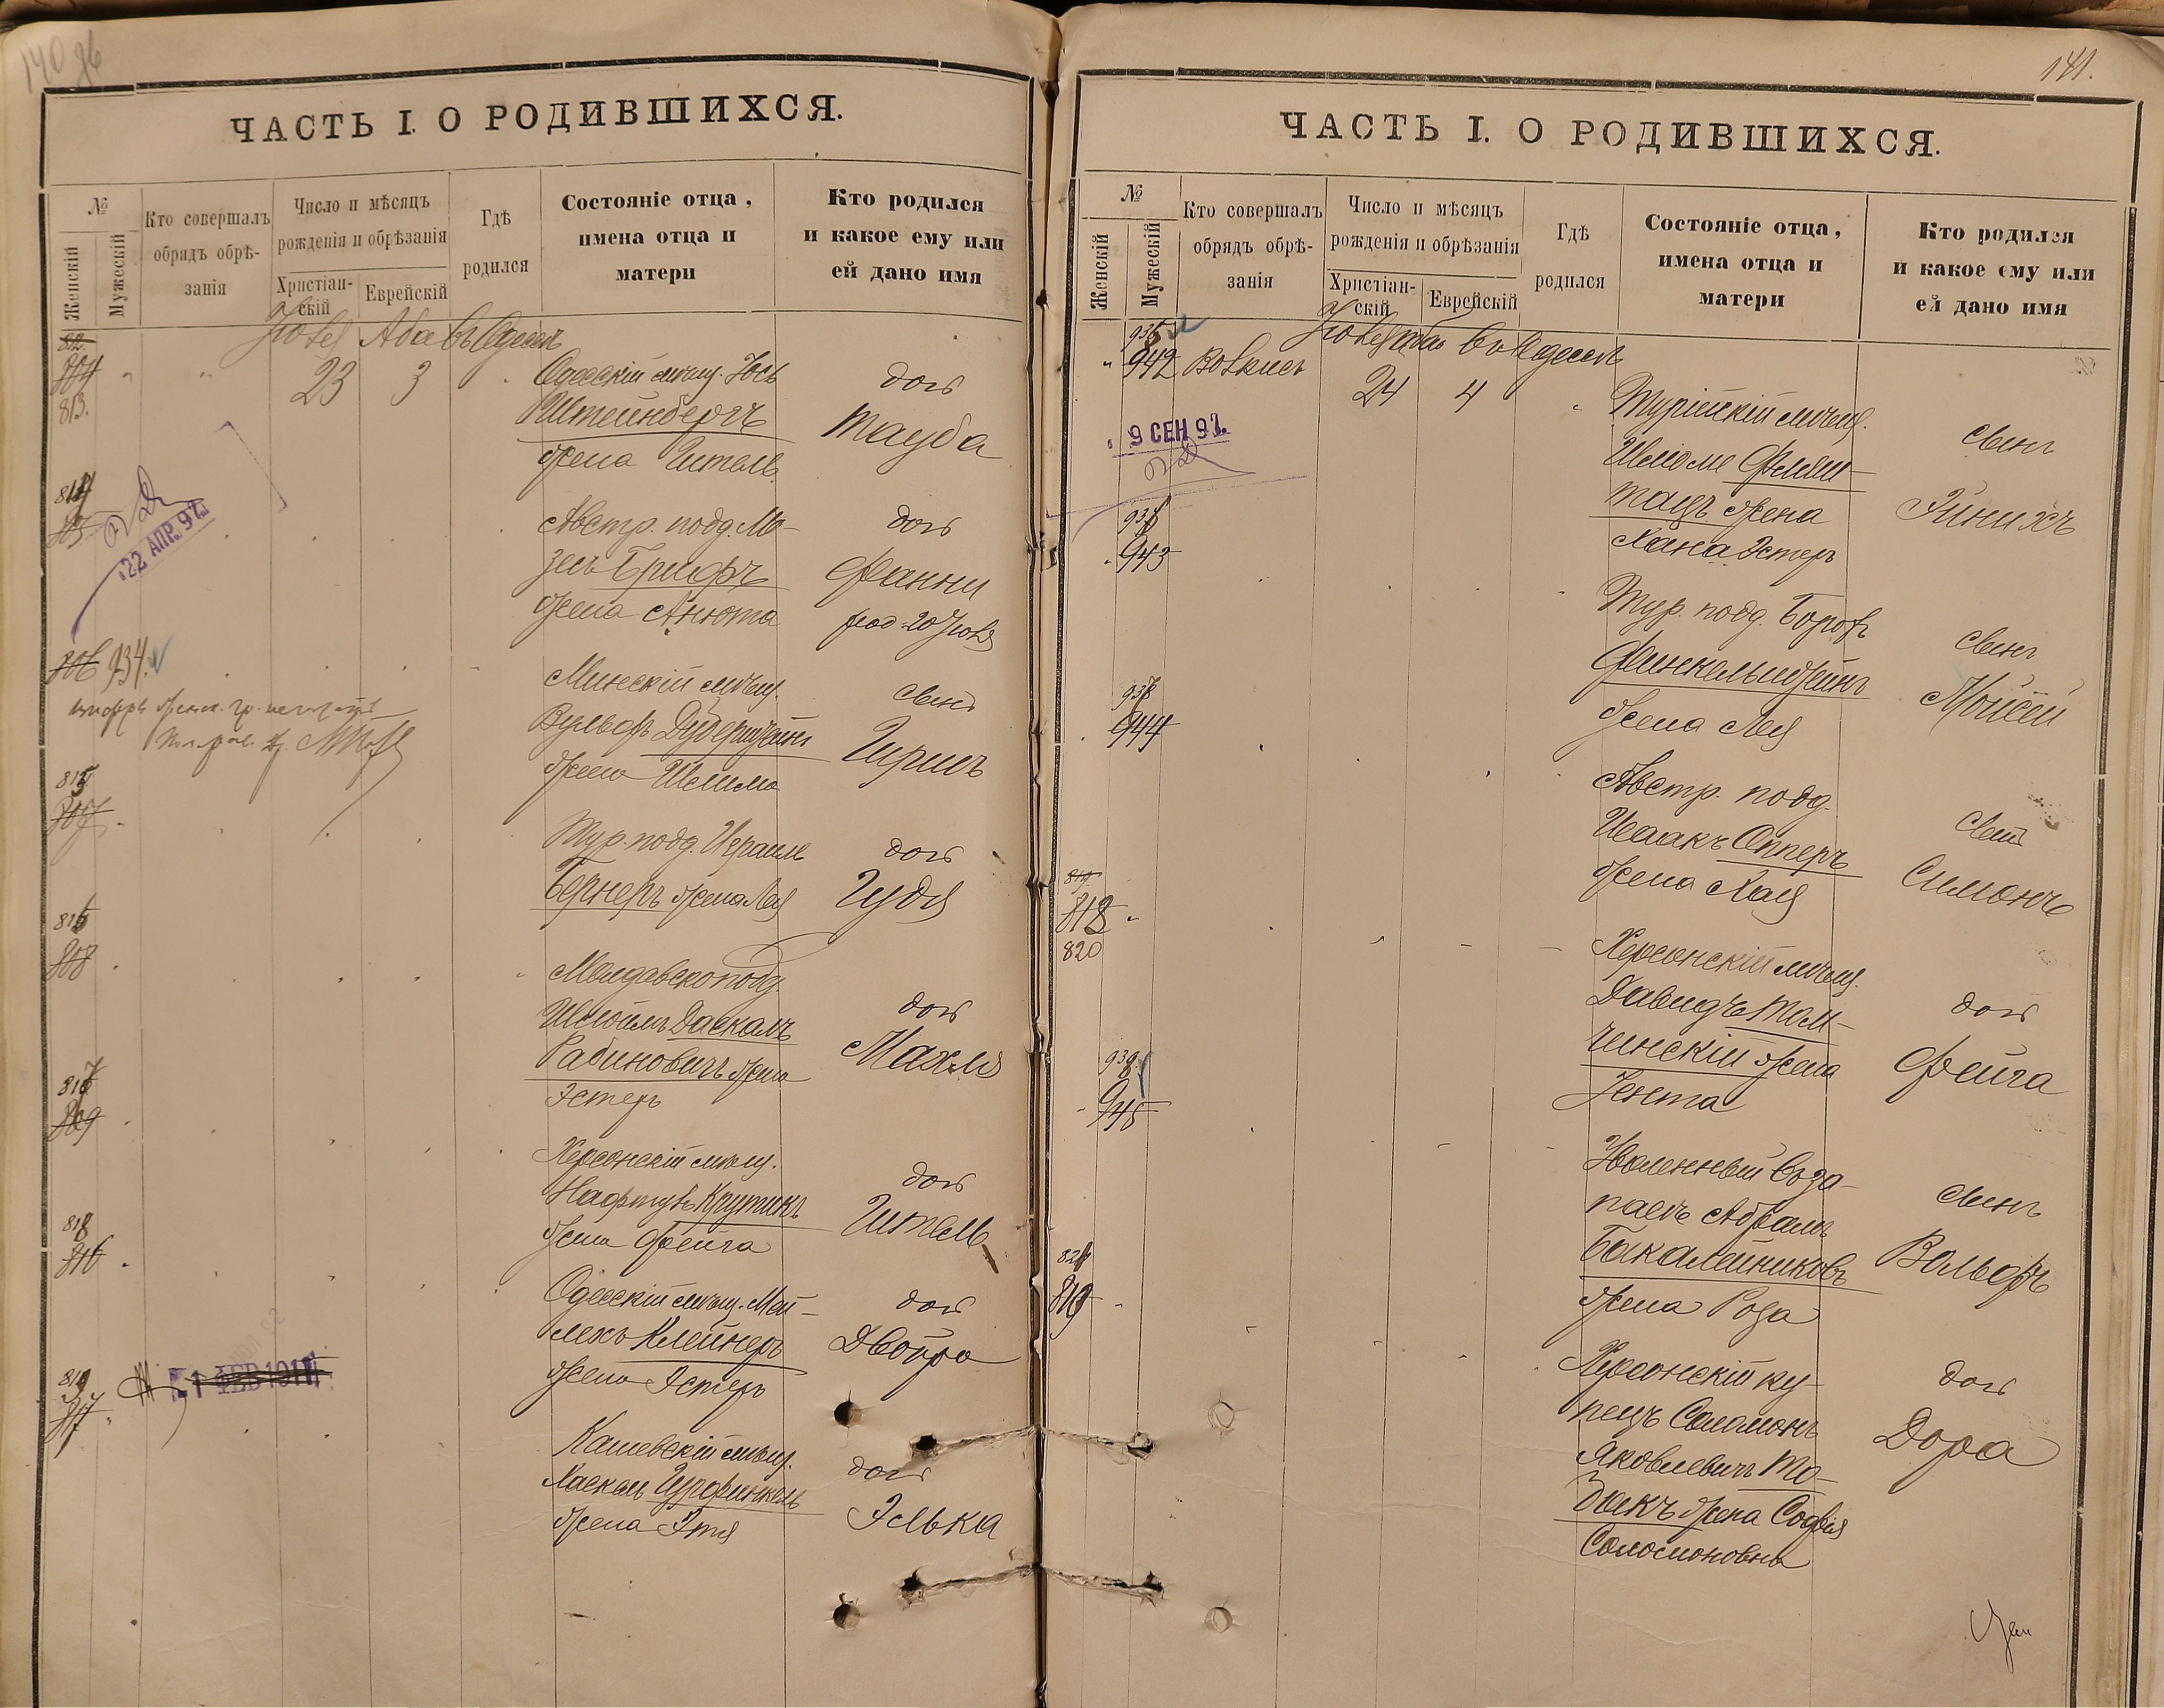 140 об
ЧАСТЬ I. О РОДИВШИХСЯ.
№
Женскій
Мужескій
Кто совершалъ
обрядъ обрѣ-
занія
Число и мѣсяцъ
рожденія и обрѣзанія
Христіан-
скій
Еврейскій
Гдѣ
родился
Состояніе отца,
имена отца и
матери
Кто родился
и какое ему или
ей дано имя
Іюль Аба въ Одессѣ
812.
804
813.
23 3
Одесскій мѣщ. Іось
Штейнбергъ
жена Гитель
дочь
Тауба
814
805
22 АПР. 97
Австр. подд. Мо-
зесъ Грифъ
жена Анюта
дочь
Фанни
род. 20 Іюля
806 934.
Минскій мѣщ.
Вульфъ Дудерштейнъ
жена Шейма
сынъ
Гиршъ
815
807
Тур. подд. Израиль
Бернеръ жена Лея
дочь
Гудя
816
808
Молдавскоподд.
Шмойлъ Даскалъ
Рабиновичъ жена
Эстеръ
дочь
Махля
817
809
Херсонскій мѣщ.
Нафтулъ Крутикъ
жена Фейга
дочь
Гитель
818
816
Одесскій мѣщ. Мей-
лехъ Клейнеръ
жена Эстеръ
дочь
Двойра
819
817
1 ФЕВ 191
Кашевскій мѣщ.
Хаскель Гурфинкель
жена Этя
дочь
Элька
141.
ЧАСТЬ I. О РОДИВШИХСЯ.
№
Женскій
Мужескій
Кто совершалъ
обрядъ обрѣ-
занія
Число и мѣсяцъ
рожденія и обрѣзанія
Христіан-
скій
Еврейскій
Гдѣ
родился
Состояніе отца,
имена отца и
матери
Кто родился
и какое ему или
ей дано имя
Іюль Аба въ Одессѣ
935
942 Волкисъ
24 4
9 СЕН 97.
Турійскій мѣщ.
Шломе Флейш-
тацъ жена
Хана Эстеръ
сынъ
Эйнихъ
936
943
Тур. подд. Борохъ
Финкельштейнъ
жена Лея
сынъ
Мойсей
937
944
Австр. подд.
Исаакъ Опперъ
жена Хая
сынъ
Симонъ
819
818
820
Херсонскій мѣщ.
Давидъ Том-
чинскій жена
Іента
дочь
Фейга
938
945
Уволенный въ за-
пасъ Абрамъ
Бакалейниковъ
жена Роза
сынъ
Вольфъ
821
819
Херсонскій ку-
пецъ Соломонъ
Яковлевичъ То-
бакъ жена Софія
Соломоновна
дочь
Дора